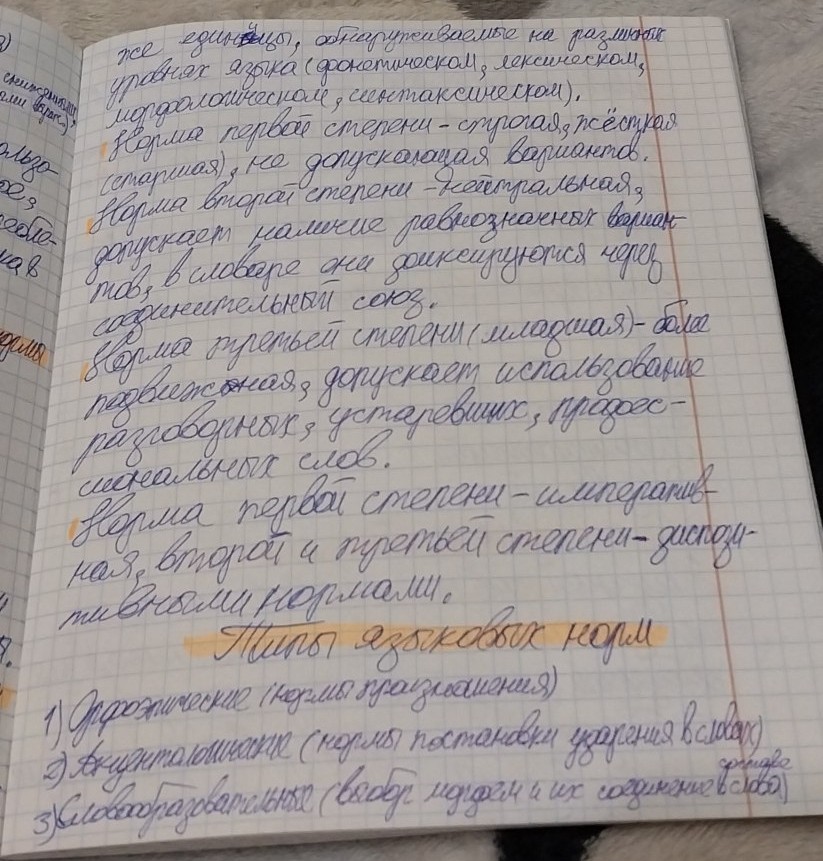 же единицы, обнаруживаемые на различных
уровнях языка (фонетическом, лексическом,
морфологическом, синтаксическом).
Норма первой степени - строгая, жёсткая
(старшая), не допускающая вариантов.
Норма второй степени - нейтральная,
допускает наличие равнозначных вариан-
тов, в словаре они фиксируются через
соединительный союз.
Норма третьей степени (младшая) - более
подвижная, допускает использование
разговорных, устаревших, профес-
сиональных слов.
Норма первой степени - императив-
ная, второй и третьей степени - диспози-
тивными нормами.
Типы языковых норм
1) Орфоэпические (нормы произношения)
2) Акцентологические (нормы постановки ударения в словах)
3) Словообразовательные (выбор морфем и их соединение в составе слова)